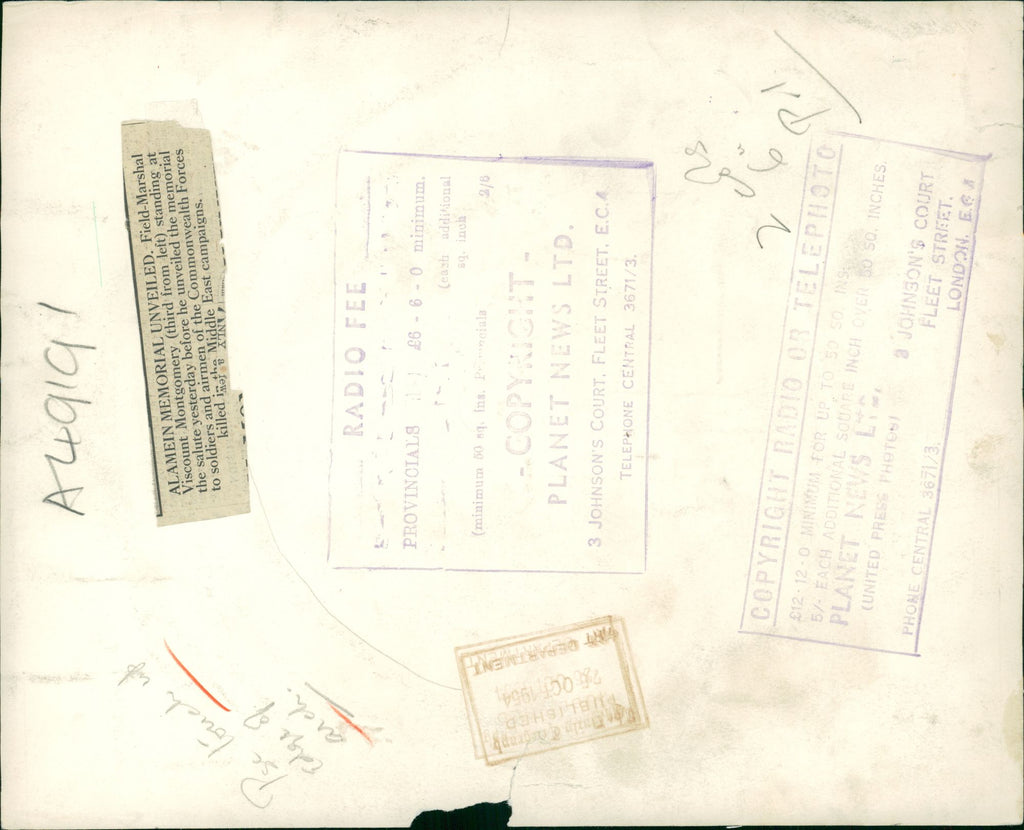 A49191
ALAMEIN MEMORIAL UNVEILED. Field-Marshal
Viscount Montgomery (third from left) standing at
the salute yesterday before he unveiled the memorial
to soldiers and airmen of the Commonwealth Forces
killed in the Middle East campaigns.
RADIO FEE
PROVINCIALS £6-6-0 minimum.
(each additional
sq. inch
2/6
(minimum 60 sq. ins. Provincials
-COPYRIGHT-
PLANET NEWS LTD.
3 JOHNSON'S COURT, FLEET STREET, E.C.4
TELEPHONE CENTRAL 3671/3.
COPYRIGHT RADIO OR TELEPHOTO
£12-12-0 MINIMUM FOR UP TO 50 SQ. INS.
5/- EACH ADDITIONAL SQUARE INCH OVER 50 SQ. INCHES.
PLANET NEWS LTD.
(UNITED PRESS PHOTOS)
3 JOHNSON'S COURT
FLEET STREET,
LONDON, E.C.4
PHONE CENTRAL 3671/3.
Touch up
edge of
arch.
ART DEPARTMENT
26 OCT 1954
PUBLISHED
Daily Telegraph